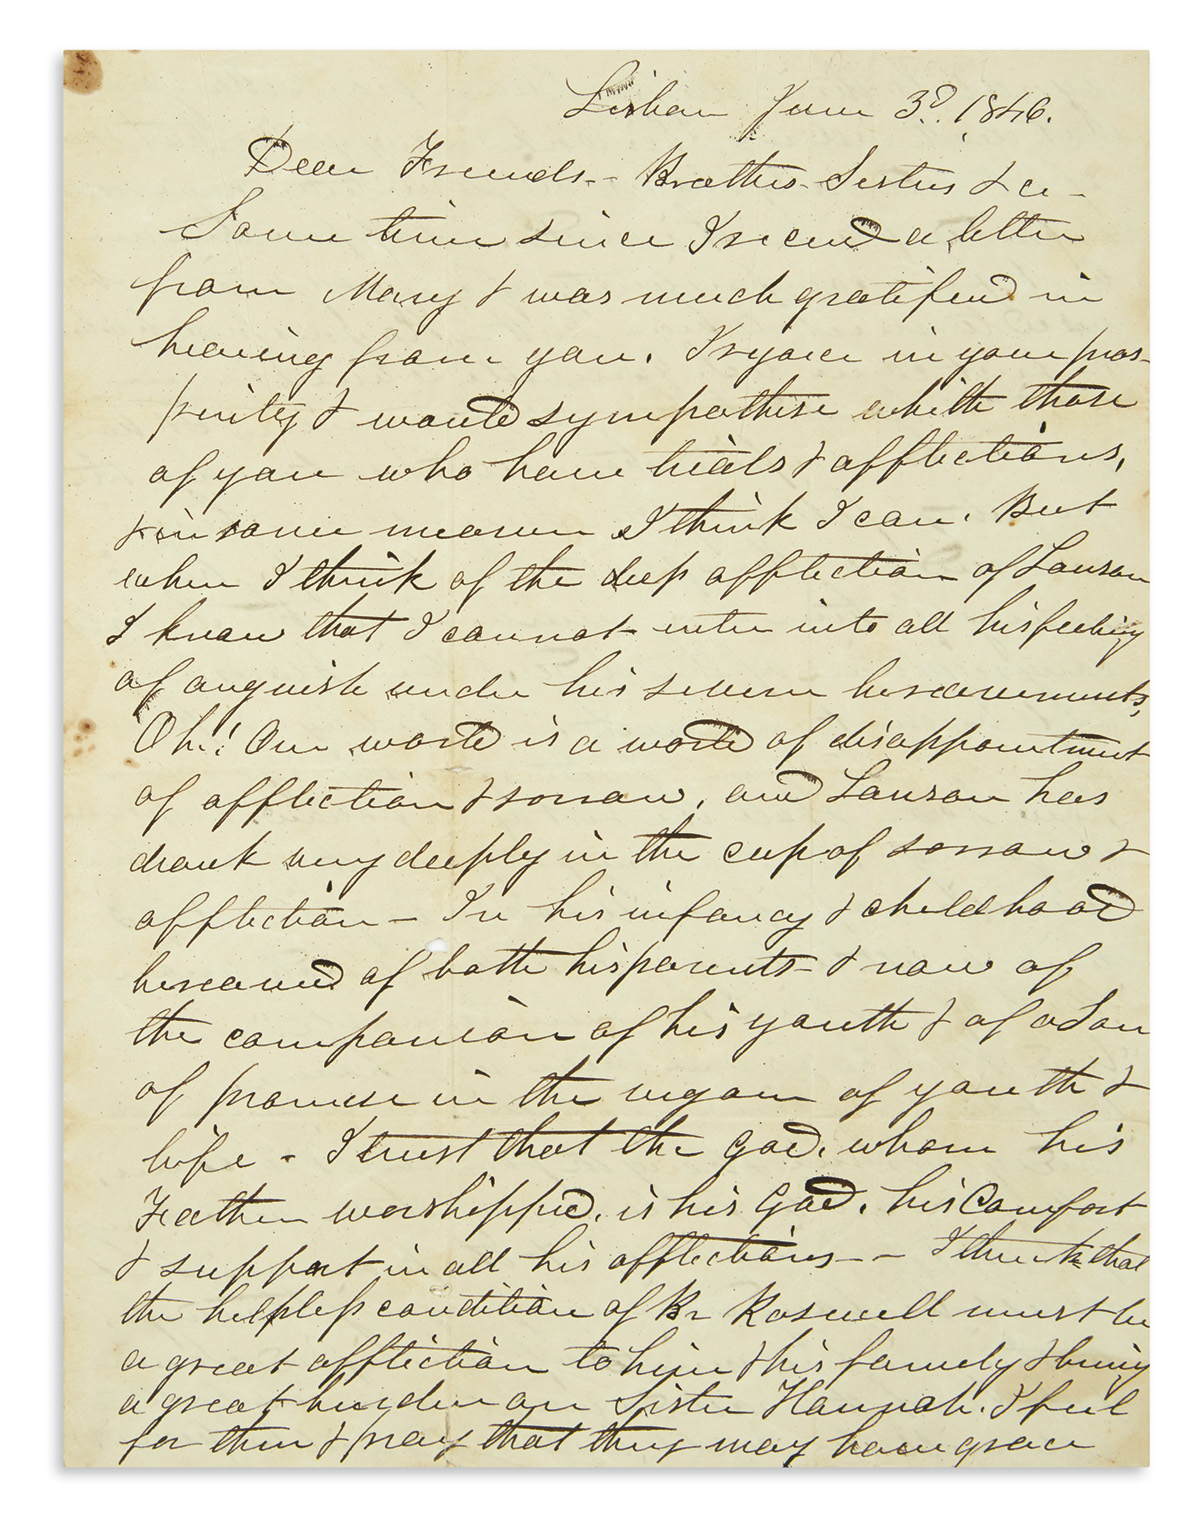 Lisbon June 3d. 1846.
Dear Friends -- Brothers - Sisters & c -
Some time since I received a letter
from Mary & was much gratified in
hearing from you. I rejoice in your pros-
perity & would sympathise whith those
of you who have trials & afflictions,
& in some measure I think I can. But
when I think of the deep affliction of Lanson
I know that I cannot enter into all his feelings
of anguish under his severe bereavements,
Oh!! Our world is a world of disappointment
of affliction & sorrow, and Lanson has
drank very deeply in the cup of sorrow &
affliction - In his infancy & childhood
bereaved of both his parents - & now of
the companion of his youth & of a Son
of promise in the vigour of youth &
life - I trust that the God, whom his
Father worshipped, is his God, his Comfort
& support in all his afflictions -- I think that
the helpless condition of Br Roswell must be
a great affliction to him & his family & bring
a great burden on Sister Hannah. I feel
for them & pray that they may have grace